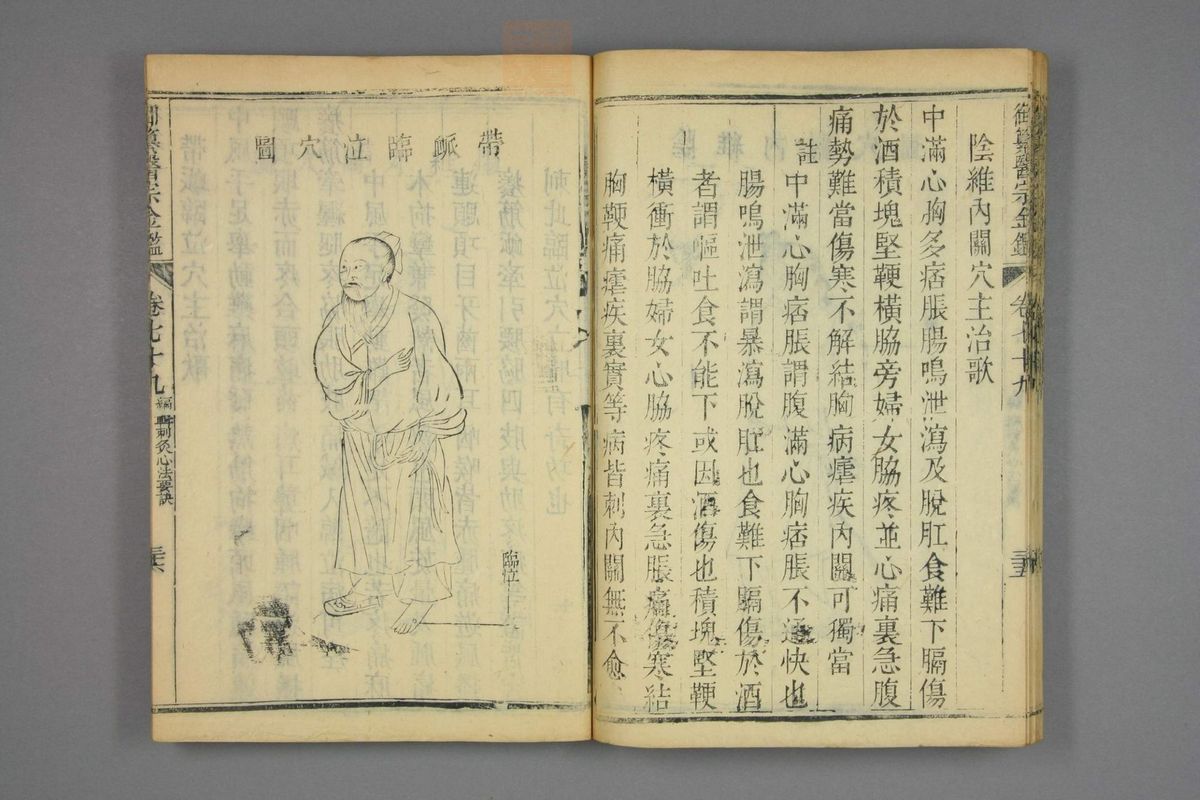 御纂醫宗金鑑 卷七十九 三五
陰維內關穴主治歌
中滿心胸多痞脹腸鳴泄瀉及脫肛食難下膈傷
於酒積塊堅鞕橫脇旁婦女脇疼並心痛裏急腹
痛勢難當傷寒不解結胸病瘧疾內關可獨當
註
中滿心胸痞脹謂腹滿心胸痞脹不通快也
腸鳴泄瀉謂暴瀉脫肛也食難下膈傷於酒
者謂嘔吐食不能下或因酒傷也積塊堅鞕
橫衝於脇婦女心脇疼痛裏急脹痛傷寒結
胸鞕痛瘧疾裏實等病皆刺內關無不愈
帶衇臨泣穴圖
臨泣
御纂醫宗金鑑 卷七十九 編輯刺灸心法要訣 三六